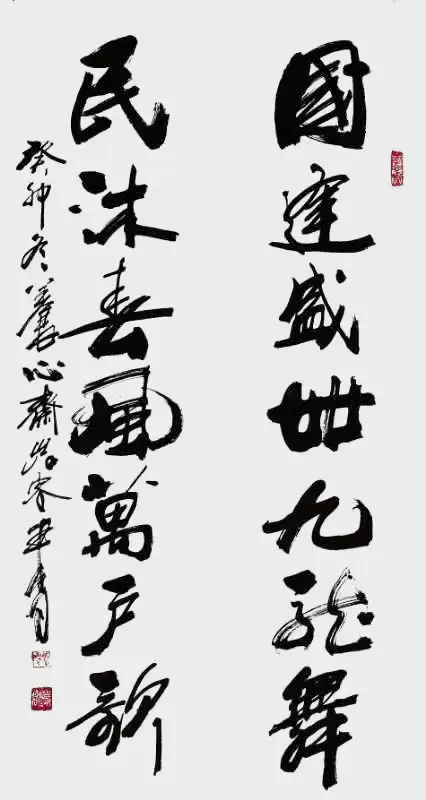 國逢盛世九龍舞
民沐春風萬户歌
癸卯冬養心齋